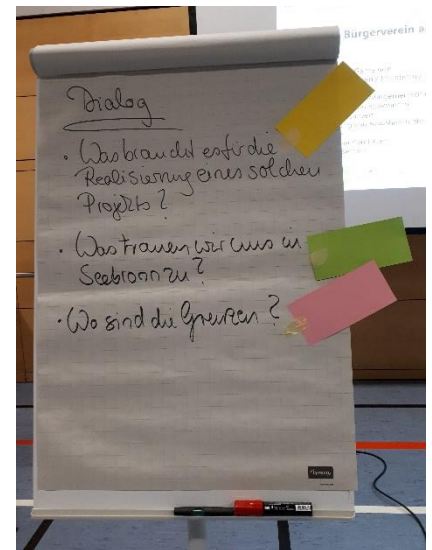 Bürgerverein a
Dialog
· Was braucht es für die
Realisierung eines solchen
Projekts?
· Was trauen wir uns in
Seebronn zu?
· Wo sind die Grenzen?